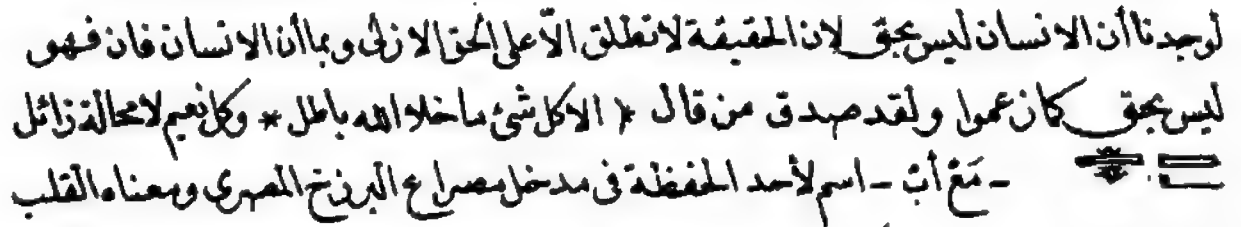 لوجدنا أن الانسان ليس بحق لان الحقيقة لا تطلق الّا على الحق الازلى وبما أن الانسان فان فهو
ليس بحق كما زعموا ولقد صدق من قال * الا كل شئ ما خلا الله باطل * وكل نعيم لا محالة زائل
- مَعْ أبْ - اسم لأحد الحفظة فى مدخل مصراع البرزخ المصرى ومعناه القلب